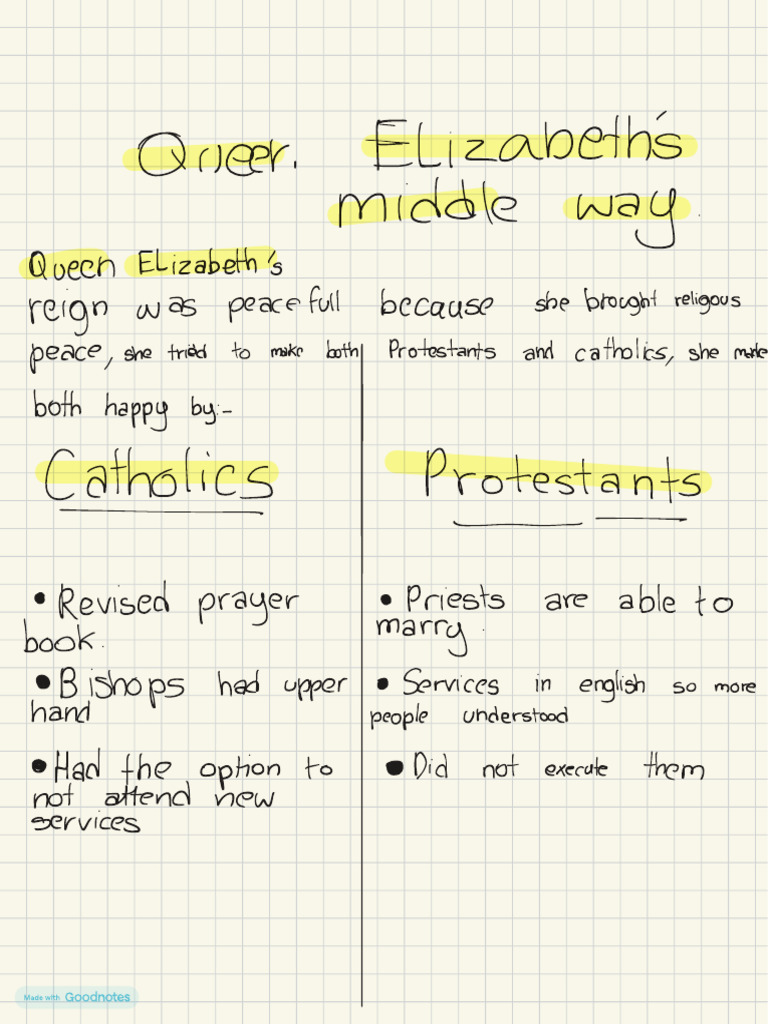 Queen Elizabeth's
middle way.
Queen Elizabeth's
reign was peacefull because she brought religous
peace, she tried to make both Protestants and catholics, she made
both happy by:-
Catholics
Protestants
• Revised prayer
book.
• Bishops had upper
hand
• Had the option to
not attend new
services
• Priests are able to
marry.
• Services in english so more
people understood
• Did not execute them
Made with Goodnotes